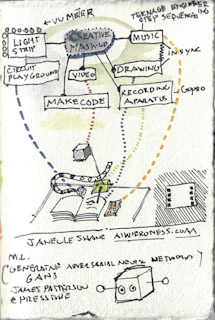 ← VU METER
TEENAGE ENGINEER
STEP SEQUENC
ING
LIGHT
STRIP
CREATIVE
MASH-UP
MUSIC
IN SYNC
CIRCUIT
PLAYGROUND
VIDEO
DRAWING
MAKECODE
RECORDING
APARATUS
GOPRO
JANELLE SHANE AIWEIRDNESS.COM
M.L.
(GENERATIVE ADVERSARIAL NEURAL NETWORKS)
GANS
JAMES PATTERSON
@PRESSTUBE